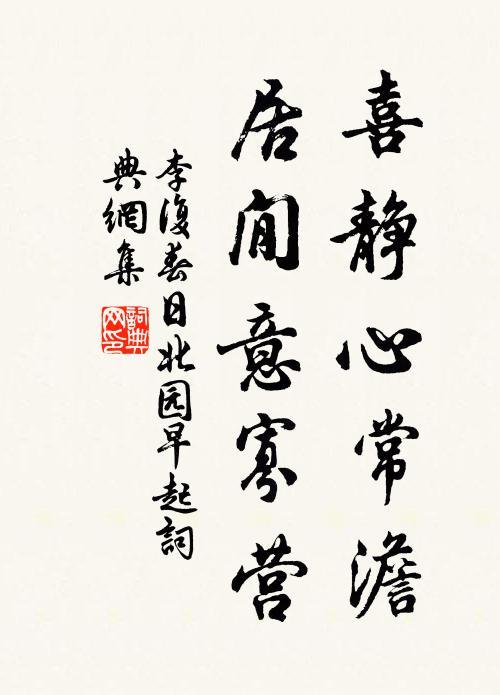 喜静心常澹
居閒意寡营
李復春日北园早起詞
典網集
詞典网印